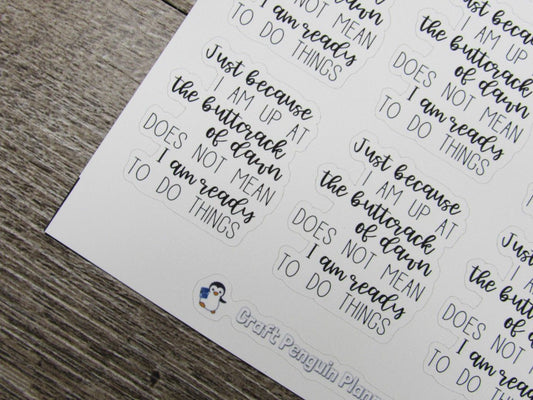 I am ready
TO DO THINGS
Just because
I AM UP AT
the buttcrack
of dawn
DOES NOT MEAN
I am ready
TO DO THINGS
I AM UP
the buttcrack
of dawn
DOES NOT MEAN
I am ready
TO DO THINGS
Just because
I AM UP AT
the buttcrack
of dawn
DOES NOT MEAN
I am ready
TO DO THINGS
I AM
the butt
of
DOES NOT
I am read
TO DO TH
Craft Penguin